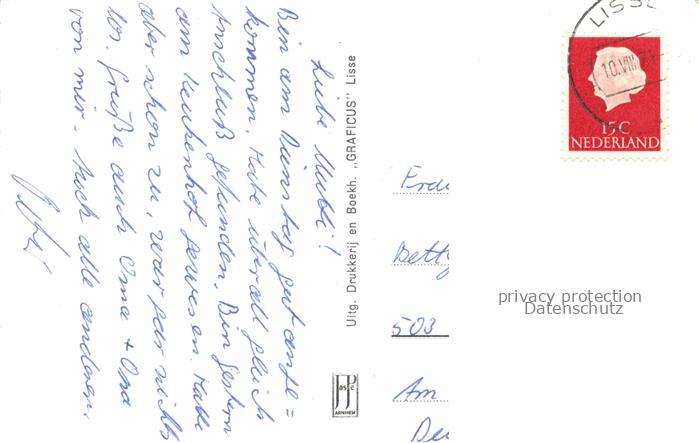 Liebe Mutti!
Bin am Dienstag gut ange=
kommen. Habe überall gleich
Anschluß gefunden. Bin gestern
am Keukenhof gewesen. Hatte
aber schon zu, war gar nichts
los. Grüße auch Oma + Opa
von mir. Auch alle anderen.
Uitg. Drukkerij en Boekh. „GRAFICUS” Lisse
JosPé
ARNHEM
LISSE
10.VIII
15C
NEDERLAND
Frau
Betty
503
Am
privacy protection
Datenschutz